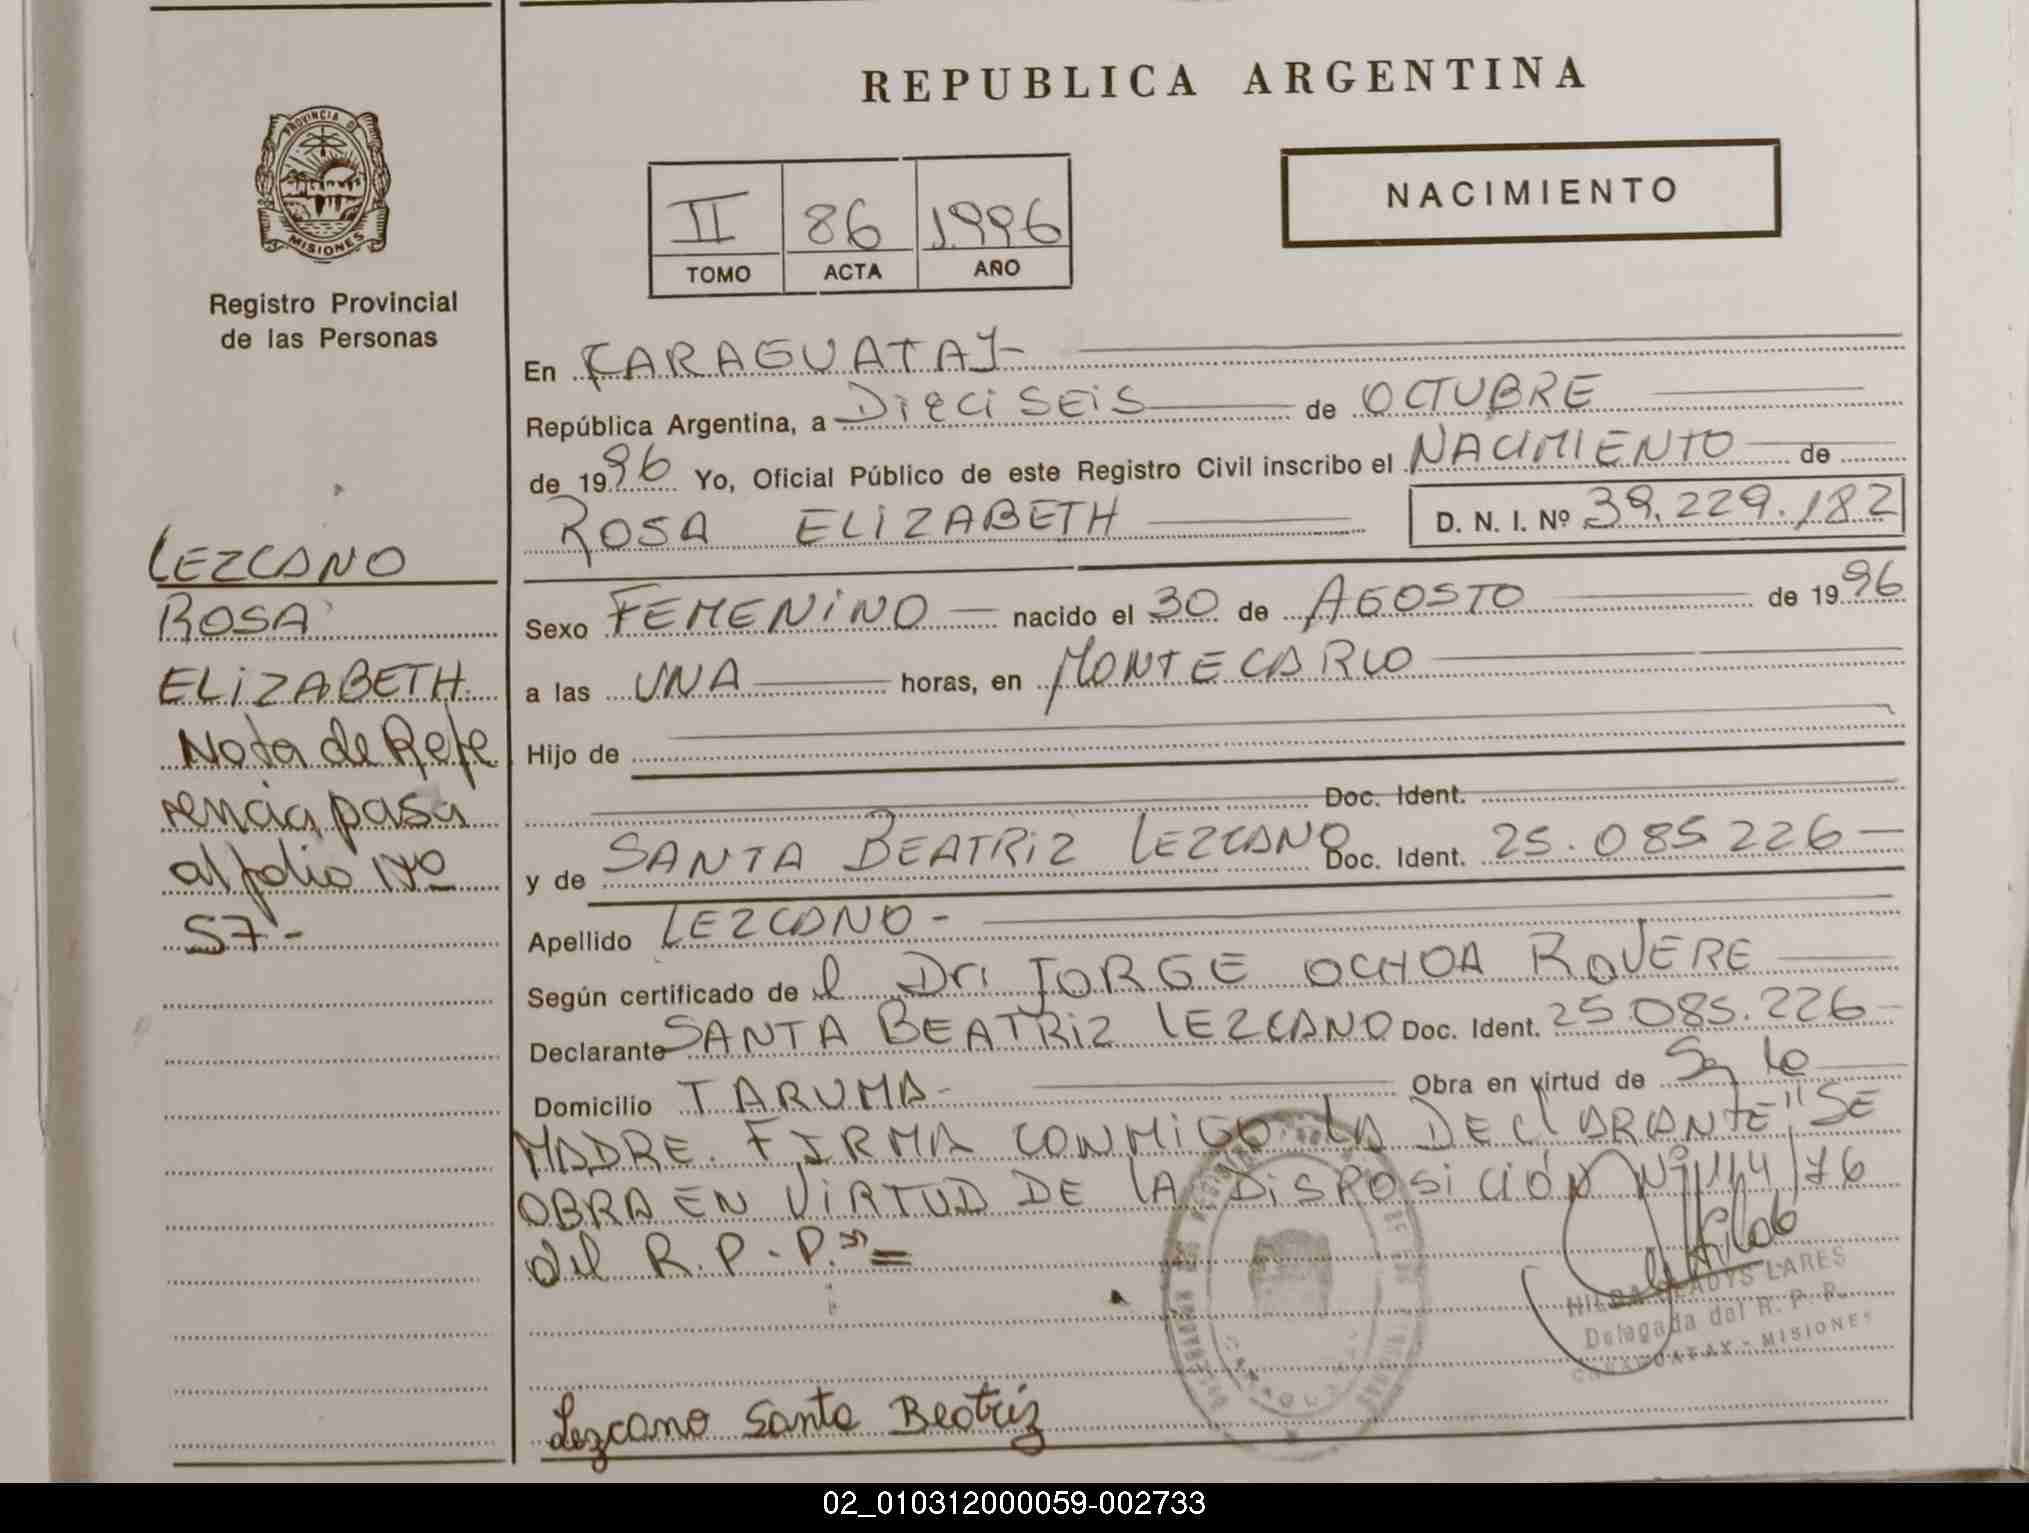 REPUBLICA ARGENTINA
PROVINCIA DE
MISIONES
Registro Provincial
de las Personas
II 86 1996
TOMO ACTA AÑO
NACIMIENTO
En CARAGUATAY
República Argentina, a DieciSEiS de OCTUBRE
de 1996 Yo, Oficial Público de este Registro Civil inscribo el NACIMIENTO de
ROSA ELIZABETH D. N. I. Nº 39.229.182
Sexo FEMENiNO nacido el 30 de AGOSTO de 1996
a las UNA horas, en MONTECARLO
Hijo de
Doc. Ident.
y de SANTA BEATRiZ LEZCANO Doc. Ident. 25.085226
Apellido LEZCANO -
Según certificado de l Dr. JORGE OCHOA ROVERE
Declarante SANTA BEATRiZ LEZCANO Doc. Ident. 25.085.226
Domicilio TARUMA- Obra en virtud de Ser la
MADRE. FIRMA CONMiGO LA DEClARANTE "SE
OBRA EN VIRTUD DE LA DiSPOSiCiÓN Nº 114/76
del R.P.P." =
HILDA GLADYS LARES
Delegada del R. P. P.
CARAGUATAY - MISIONES
Lezcano Santa Beatriz
LEZCANO
ROSA
ELiZABETH
Nota de Refe
rencia pasa
al folio Nº
57-
02_010312000059-002733